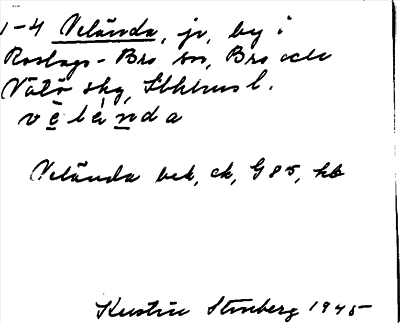 1-4 Veländа, jo, by i
Roslags-Bro sn, Bro och
Vätö skg, Sthlms l.
vèlä̀nda
Velända bek, ek, G 85, kb
Kerstin Stenberg 1945